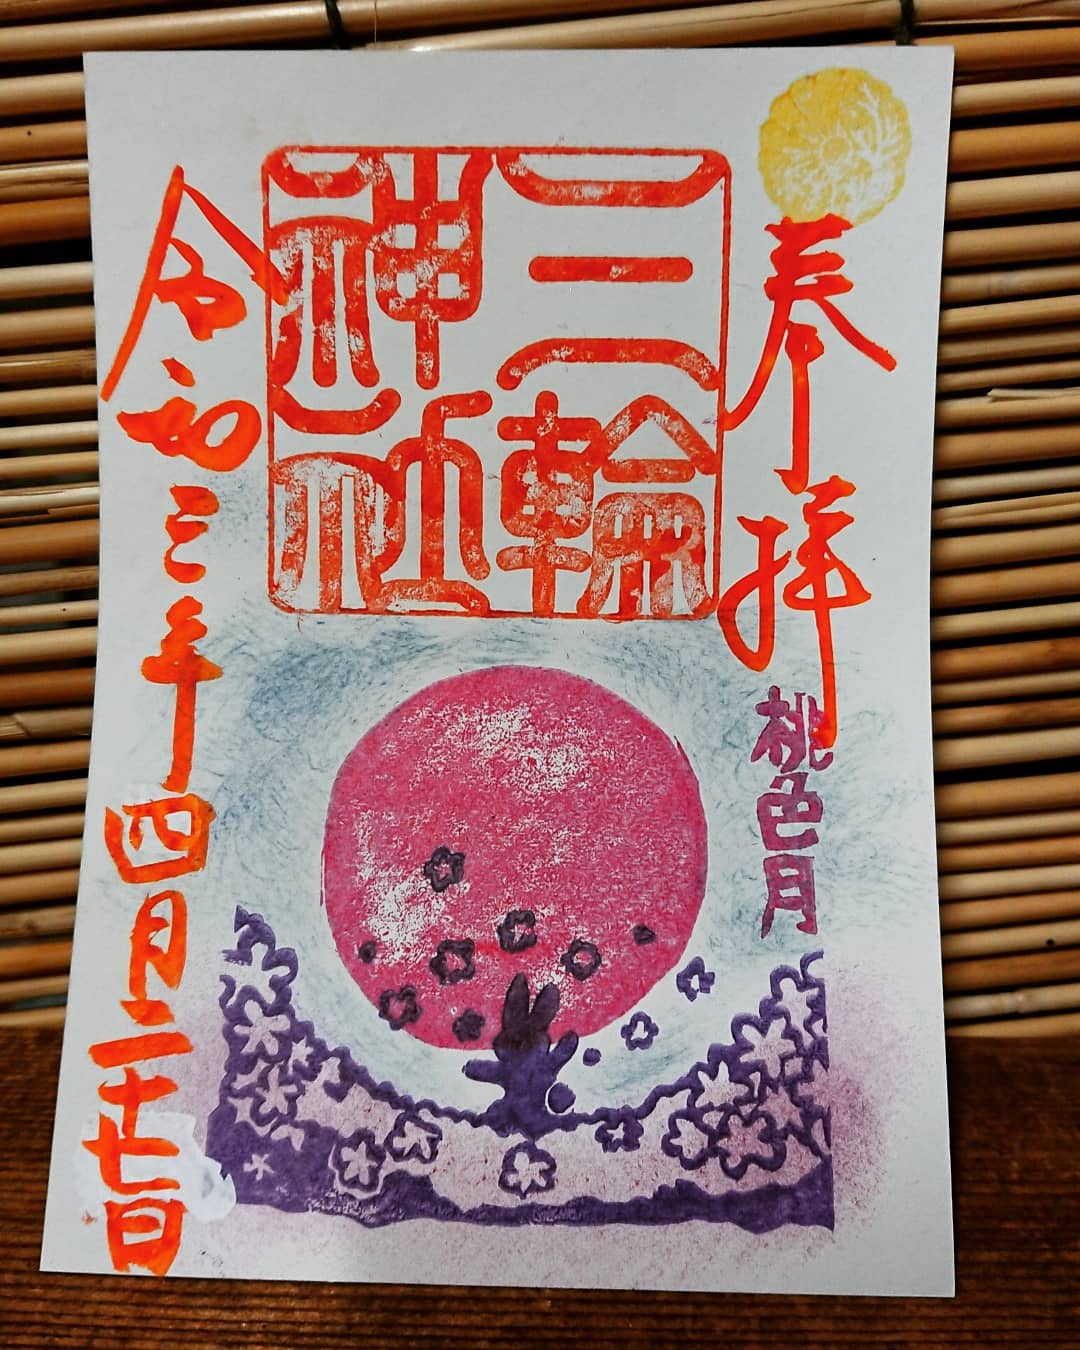 奉拝
桃色月
三輪
神社
令和三年四月二十七日